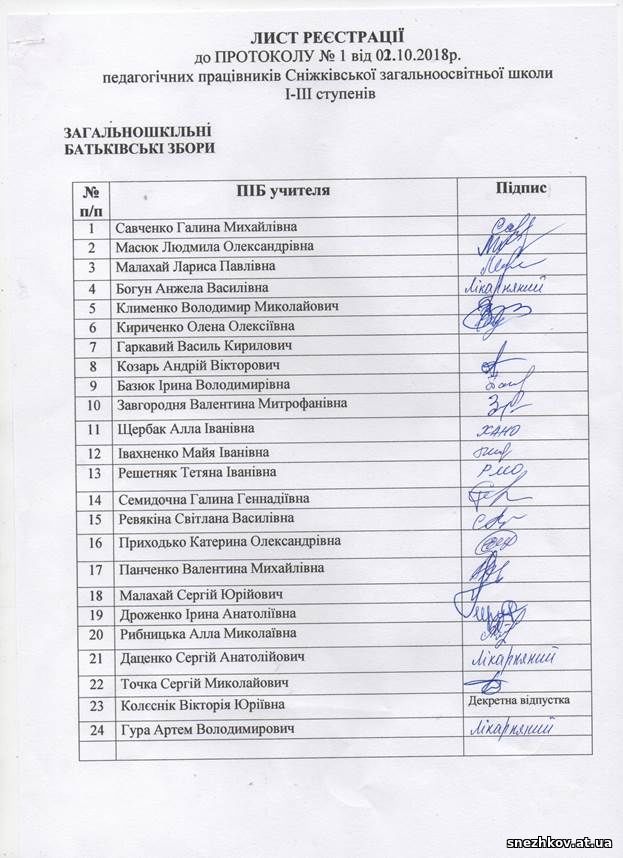 ЛИСТ РЕЄСТРАЦІЇ
до ПРОТОКОЛУ № 1 від 02.10.2018р.
педагогічних працівників Сніжківської загальноосвітньої школи
І-ІІІ ступенів
ЗАГАЛЬНОШКІЛЬНІ
БАТЬКІВСЬКІ ЗБОРИ
№ п/п ПІБ учителя Підпис
1 Савченко Галина Михайлівна
2 Масюк Людмила Олександрівна
3 Малахай Лариса Павлівна
4 Богун Анжела Василівна Лікарняний
5 Клименко Володимир Миколайович
6 Кириченко Олена Олексіївна
7 Гаркавий Василь Кирилович
8 Козарь Андрій Вікторович
9 Базюк Ірина Володимирівна
10 Завгородня Валентина Митрофанівна
11 Щербак Алла Іванівна
12 Івахненко Майя Іванівна
13 Решетняк Тетяна Іванівна
14 Семидочна Галина Геннадіївна
15 Ревякіна Світлана Василівна
16 Приходько Катерина Олександрівна
17 Панченко Валентина Михайлівна
18 Малахай Сергій Юрійович
19 Дроженко Ірина Анатоліївна
20 Рибницька Алла Миколаївна
21 Даценко Сергій Анатолійович Лікарняний
22 Точка Сергій Миколайович
23 Колєснік Вікторія Юріївна Декретна відпустка
24 Гура Артем Володимирович Лікарняний
snezhkov.at.ua